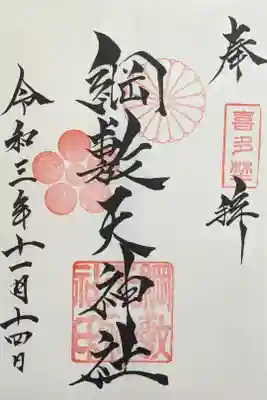 奉拝
喜多埜
綱敷天神社
令和三年十一月十四日